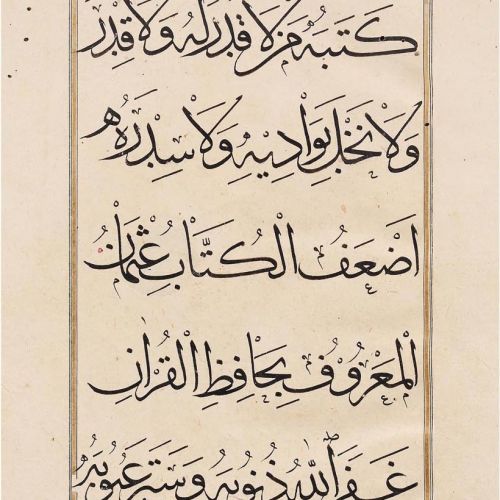 كتبه من لا قدر له ولا قدره
ولا نخل بواديه ولا سدره
اضعف الكتاب عثمان
المعروف بحافظ القران
غفر الله ذنوبه وستر عيوبه